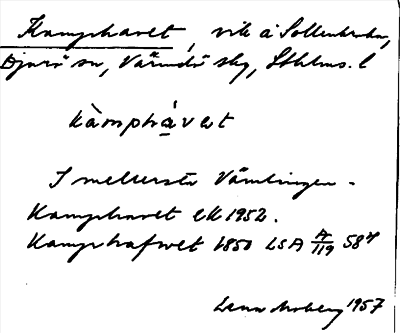 Kamphavet, vik å Sollenkroka,
Djurö sn, Värmdö skg, Sthlms. l
kàmphávet
I mellersta Vämlingen.
Kamphavet EK 1952.
Kamphafwet 1850 LSA A/119 58:4
Lena Moberg 1957